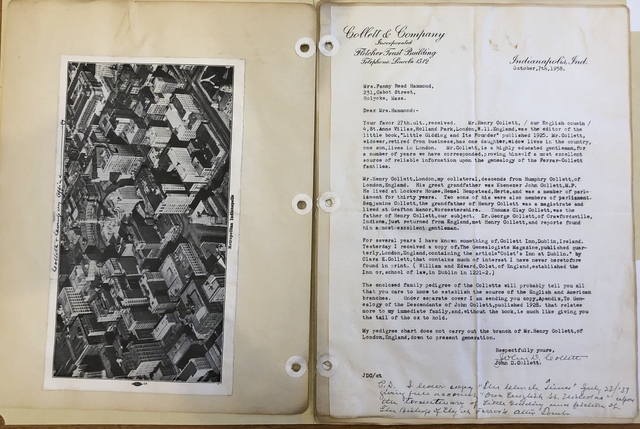 Collett & Company
Incorporated
Fletcher Trust Building
Telephone, Lincoln 1512
Indianapolis, Ind.
October,7th,1938.
Mrs.Fanny Reed Hammond,
231,Cabot Street,
Holyoke, Mass.
Dear Mrs.Hammond:-
Your favor 27th.ult.,received. Mr.Henry Collett, / our English cousin /
4,St.Anns Villas,Holland Park,London,W.11.England,was the editor of the
little book,"Little Gidding and Its Founder" published 1925. Mr.Collett,
widower,retired from business,has one daughter,widow lives in the country,
one son,lives in London. Mr.Collett,is a highly educated gentleman,for
a number of years we have corresponded,proving himself a most excellent
source of reliable information upon the genealogy of the Ferrar-Collett
families.
Mr.Henry Collett,London,my collateral,descends from Humphry Collett,of
London,England. His great grandfather was Ebenezer John Collett,M.P.
He lived at Lockers House,Hemel Hempstead,Herts,and was a member of par-
liament for thirty years. Two sons of his were also members of parliament.
Benjamin Collett,the grandfather of Henry Collett was a magistrate and
lived at Worcestershire. Thomas Clay Collett,was the
father of Henry Collett,our subject. Dr.George Collett,of Crawfordsville,
Indiana,just returned from England,met Henry Collett,and reports found
him a most excellent gentleman.
For several years I have known something of,Collett Inn,Dublin,Ireland.
Yesterday I received a copy of,The Genealogists Magazine,published quar-
terly,London,England,containing the article"Colet's Inn at Dublin." by
James E.Collett,it contains much of interest I have never heretofore
found in print. ( William and Edward,Colet,of England,established the
Inn or,school of law,in Dublin in 1221-2.)
The enclosed family pedigree of the Colletts will probably tell you all
that you care to know to establish the source of the English and American
branches. Under separate cover I am sending you copy,Apendix,To Gen-
ealogy of the Descendants of John Collett,published 1928. that relates
more to my immediate family,and,without the book,is much like giving you
the tail of the ox to hold.
My pedigree chart does not carry out the branch of Mr.Henry Collett,of
London,England,down to present generation.
Respectfully yours,
John D. Collett
John D.Collett.
JDC/st
July 23/37
giving full account "Our English
the Tercentenary of Little Gidding
The Bishop of Ely at Ferrar's Altar Tomb
Metropolitan Indianapolis